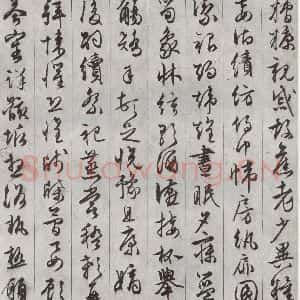 糟糠親戚故舊老少異糧
妾御績紡侍巾帷房紈扇圓
潔銀燭煒煌晝眠夕寐藍
筍象床弦歌酒宴接杯舉
觴矯手頓足悅豫且康嫡
後嗣續祭祀蒸嘗稽顙再
拜悚懼恐惶牋牒簡要顧
答審詳骸垢想浴執熱願
Shufawang.CN